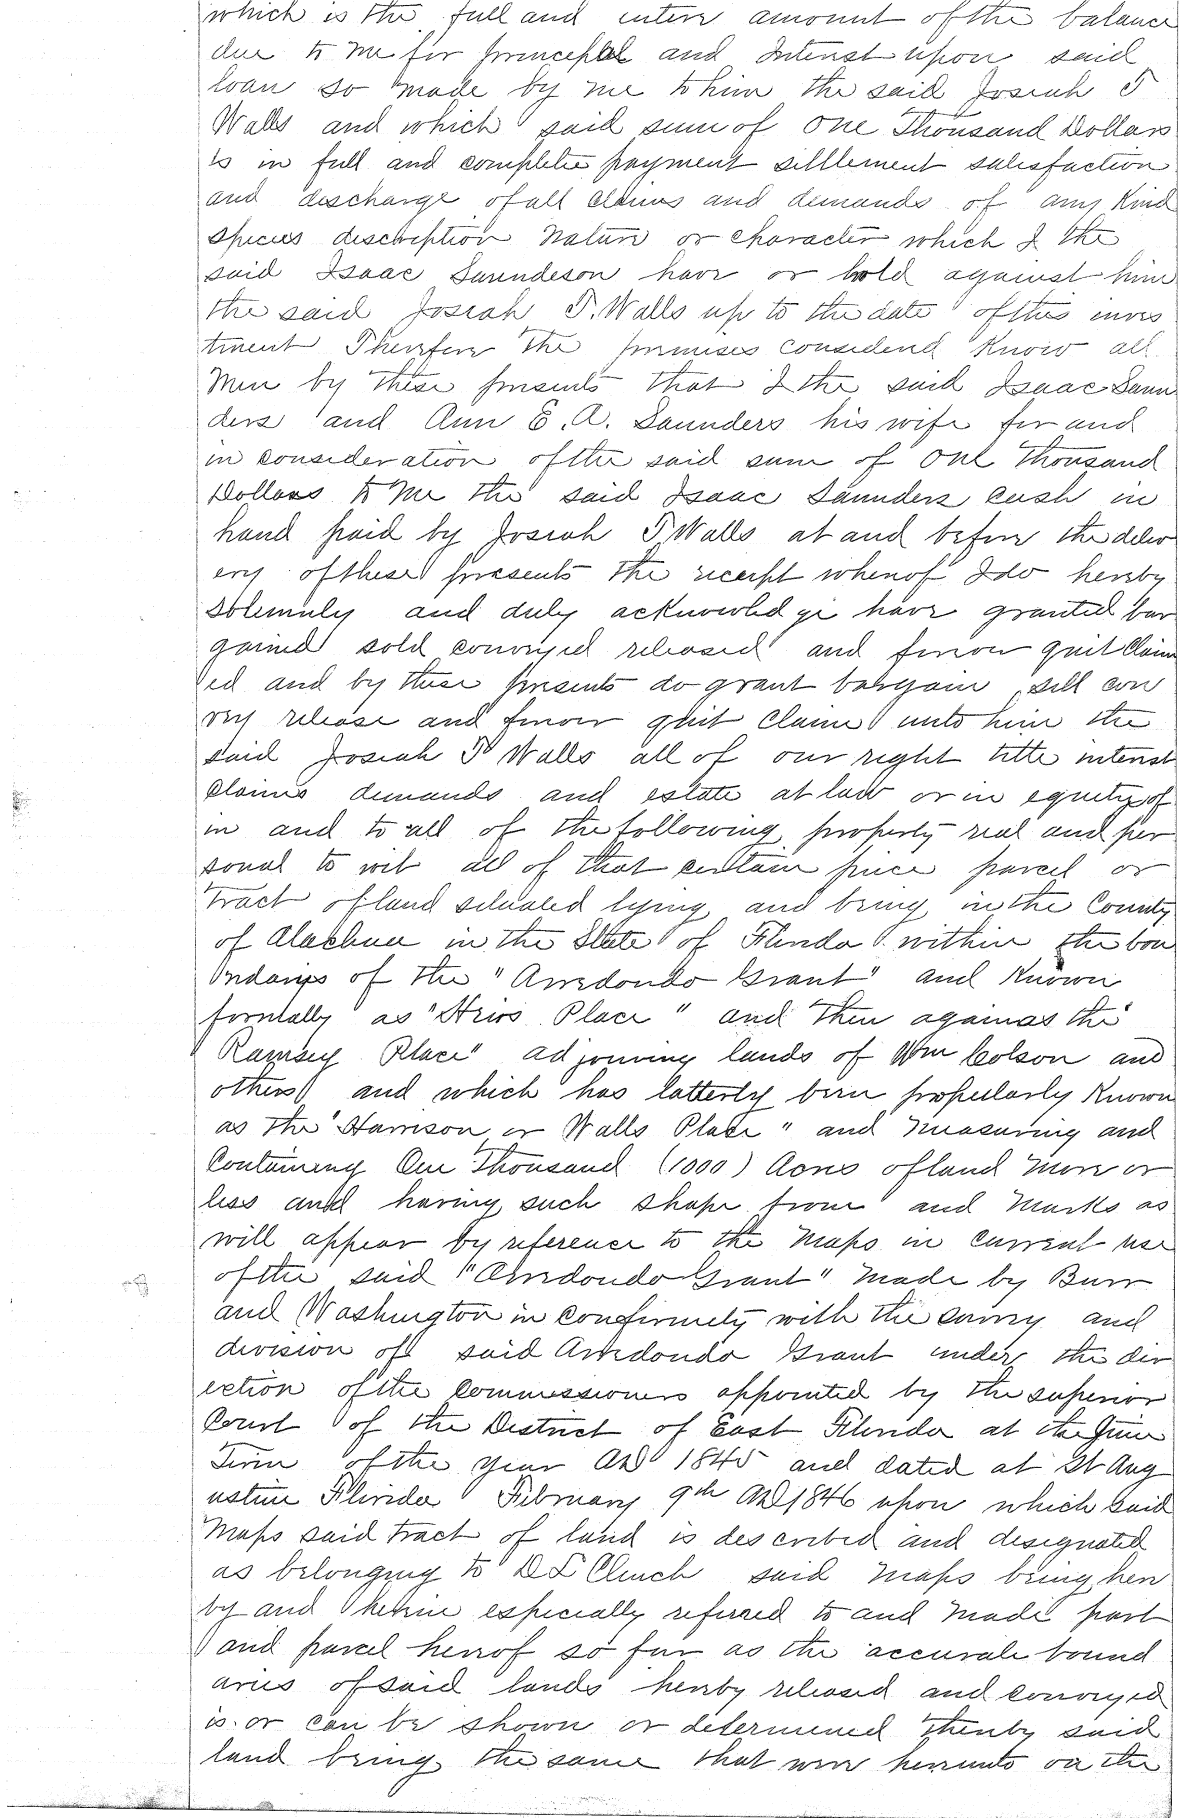 which is the full and intire amount of the balance
due to me for principal and Interest upon said
loan so made by me to him the said Josiah T
Walls and which said sum of One Thousand Dollars
is in full and complete payment settlement satisfaction
and discharge of all claims and demands of any Kind
species description Nature or character which I the
said Isaac Saundeson have or hold against him
the said Josiah T. Walls up to the date of this inves
tment Therefore the premises considered Know all
Men by these presents that I the said Isaac Saun
ders and Ann E. A. Saunders his wife for and
in consideration of the said sum of One Thousand
Dollars to me the said Isaac Saunders cash in
hand paid by Josiah T Walls at and before the deliv
ery of these presents the receipt whereof I do hereby
solemnly and duly acknowledge have granted bar
gained sold conveyed released and forever quit Claim
ed and by these presents do grant bargain sell con
vey release and forever quit Claim unto him the
said Josiah T Walls all of our right title interest
Claims demands and estate at law or in equity of
in and to all of the following property real and per
sonal to wit all of that certain piece parcel or
Tract of land situated lying and being in the County
of Alachua in the State of Florida within the bou
ndarys of the "Arredondo Grant" and Known
formally as " Place" and then again as the "
Ramsey Place" adjoining lands of Wm Colson and
others and which has latterly been propularly Known
as the "Harrison or Walls Place" and Measuring and
Containing One Thousand (1000) Acres of land More or
less and having such shape from and Marks as
will appear by reference to the Maps in Current use
of the said "Arredondo Grant" Made by Burr
and Washington in confirmety with the survey and
division of said Arredondo Grant under the dir
ection of the Commissioners appointed by the superior
Court of the District of East Florida at the June
Term of the year AD 1845 and dated at St Aug
ustine Florida February 9th AD 1846 upon which said
Maps said tract of land is described and designated
as belonging to D L Clinch said Maps being here
by and herein especially referred to and Made part
and parcel hereof so far as the accurate bound
aries of said lands hereby released and conveyed
is or can be shown or determined thereby said
land being the same that were hereunto on the